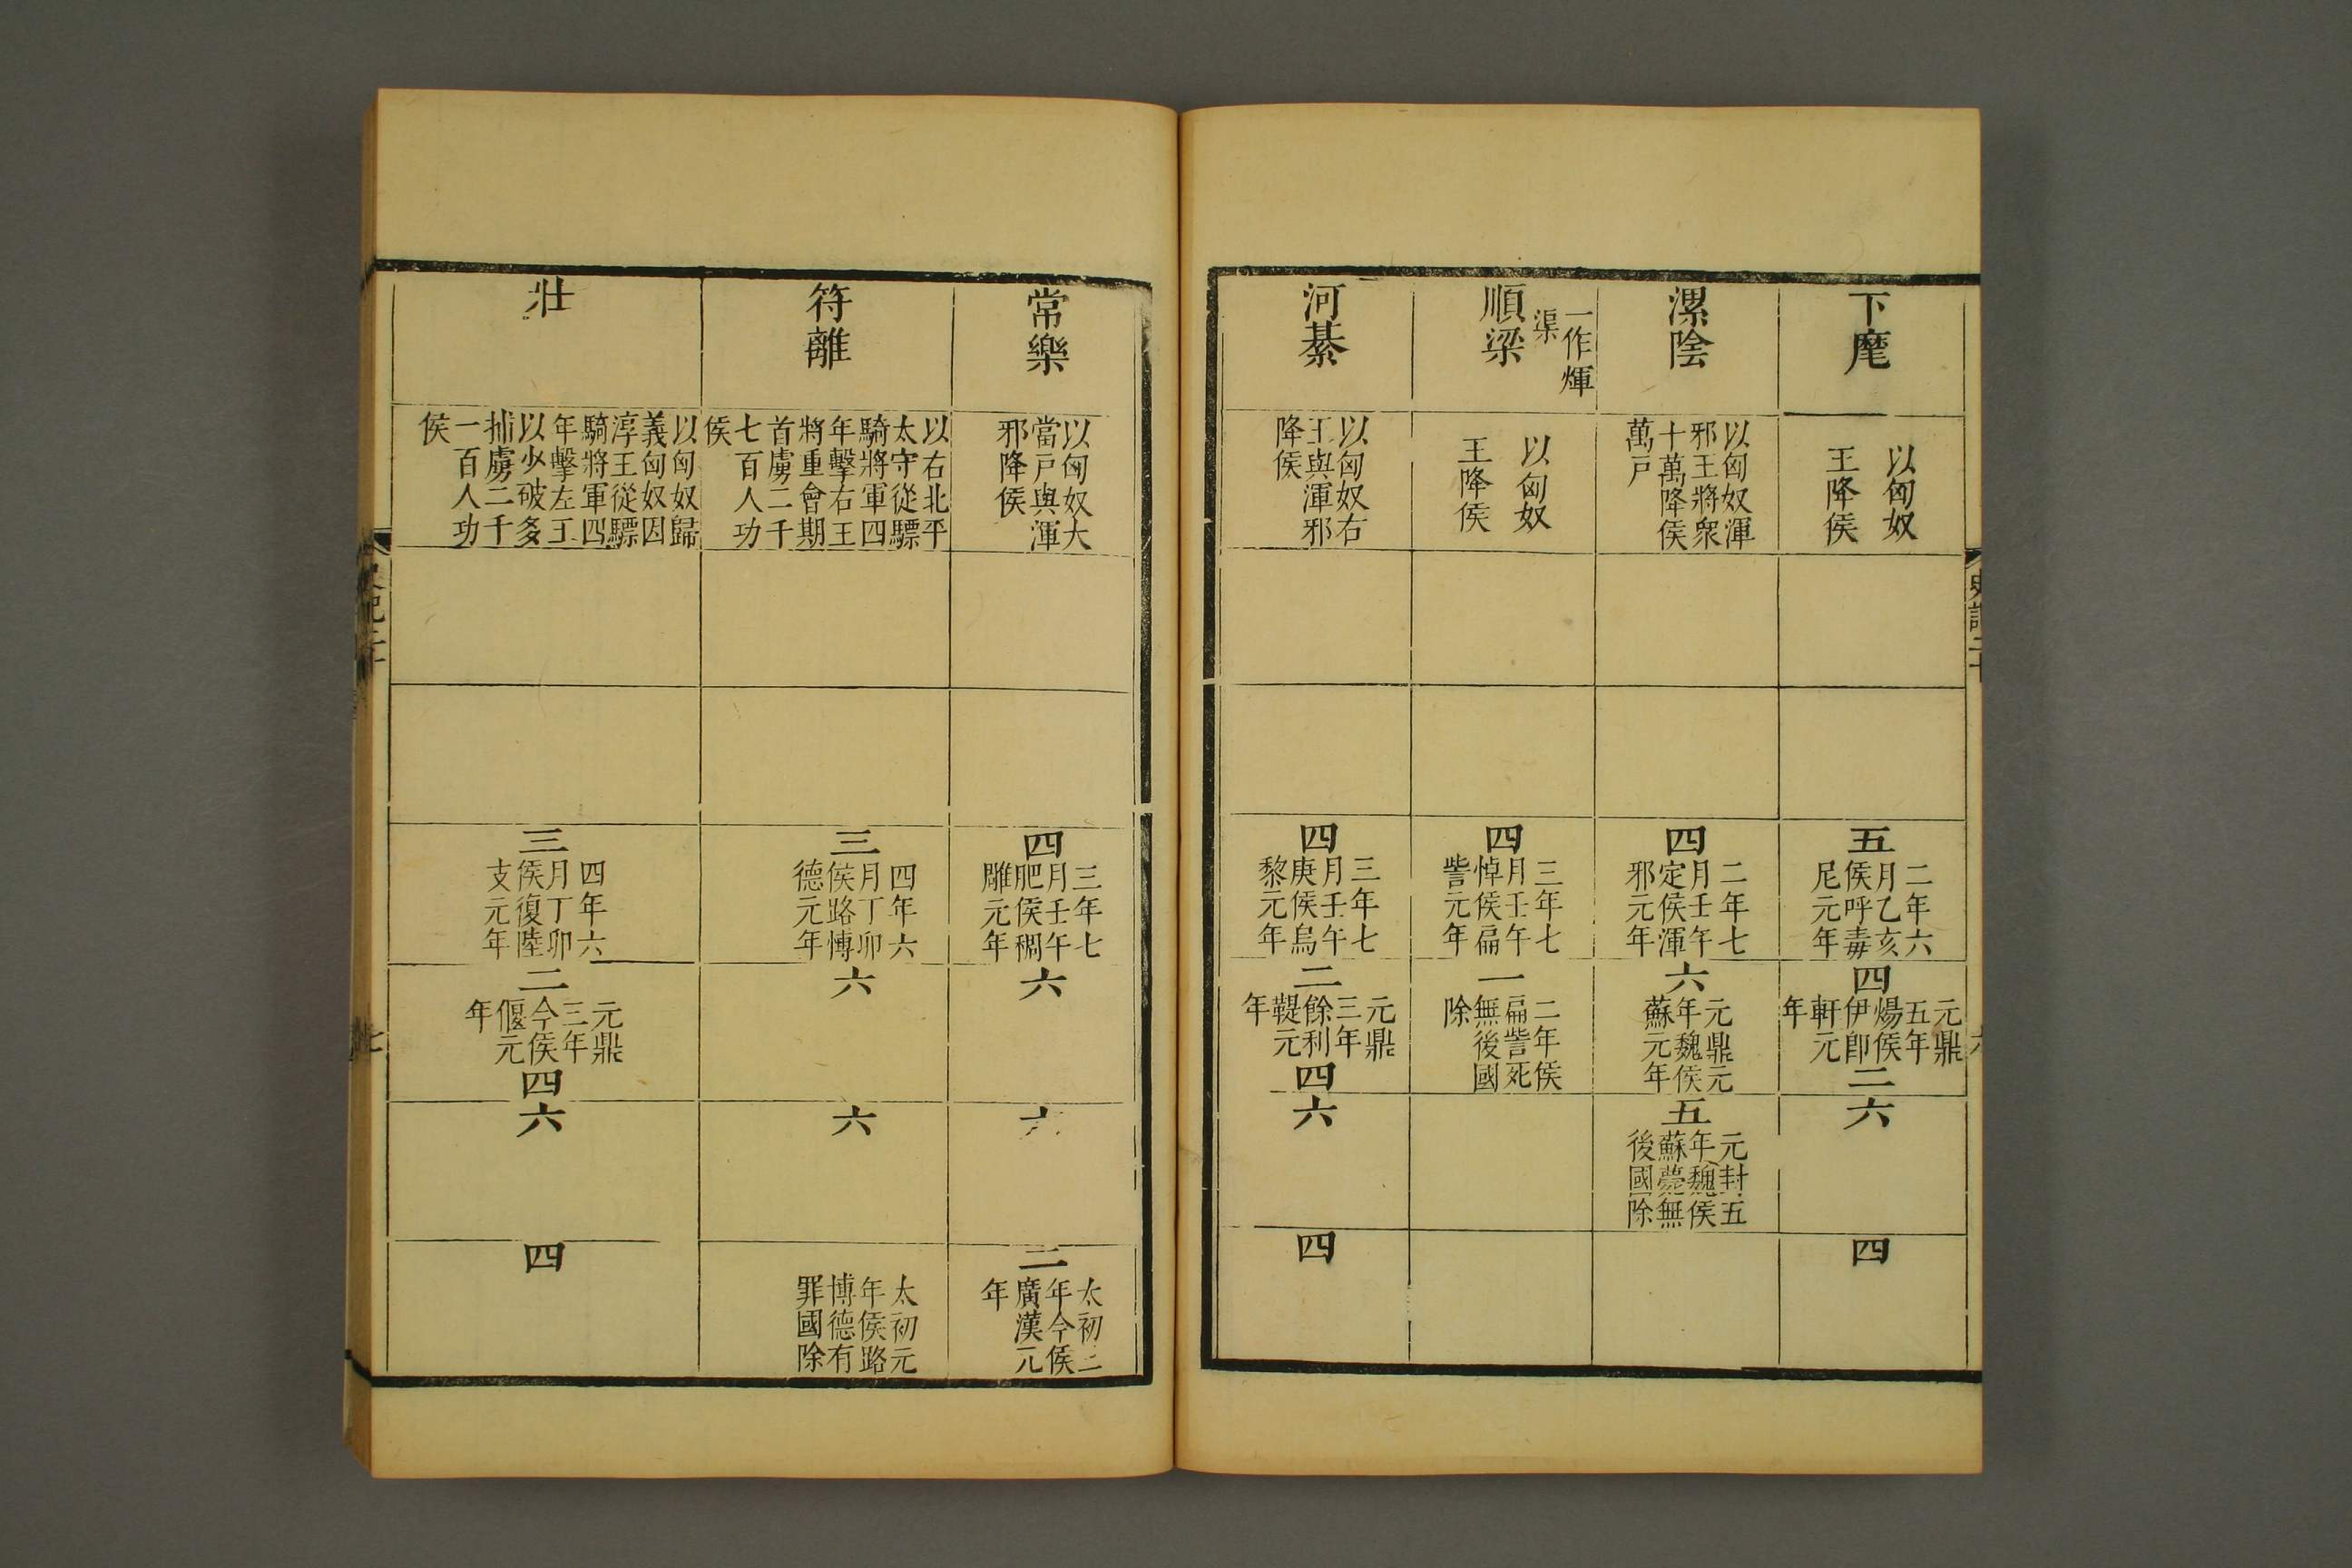 下麾
以匈奴
王降侯
五
二年六
月乙亥
侯呼毒
尼元年
四
元鼎
五年
煬侯
伊即
軒元
年
二
六
四
漯陰
以匈奴渾
邪王將衆
十萬降侯
萬戸
四
二年七
月壬午
定侯渾
邪元年
六
元鼎元
年魏侯
蘇元年
五
元封五
年魏侯
蘇薨無
後國除
一作煇
渠
順梁
以匈奴
王降侯
四
三年七
月壬午
悼侯扁
訾元年
一
二年侯
扁訾死
無後國
除
河綦
以匈奴右
王與渾邪
降侯
四
三年七
月壬午
庚侯烏
黎元年
二
元鼎
三年
餘利
鞮元
年
四
六
四
常樂
以匈奴大
當戸與渾
邪降侯
四
三年七
月壬午
肥侯稠
雕元年
六
六
二
太初三
年今侯
廣漢元
年
符離
以右北平
太守從驃
騎將軍四
年擊右王
將重會期
首虜二千
七百人功
侯
三
四年六
月丁卯
侯路愽
德元年
六
六
太初元
年侯路
博德有
罪國除
壯
以匈奴歸
義匈奴因
淳王從驃
騎將軍四
年擊左王
以少破多
捕虜二千
一百人功
侯
三
四年六
月丁卯
侯復陸
支元年
二
元鼎
三年
今侯
偃元
年
四
六
四